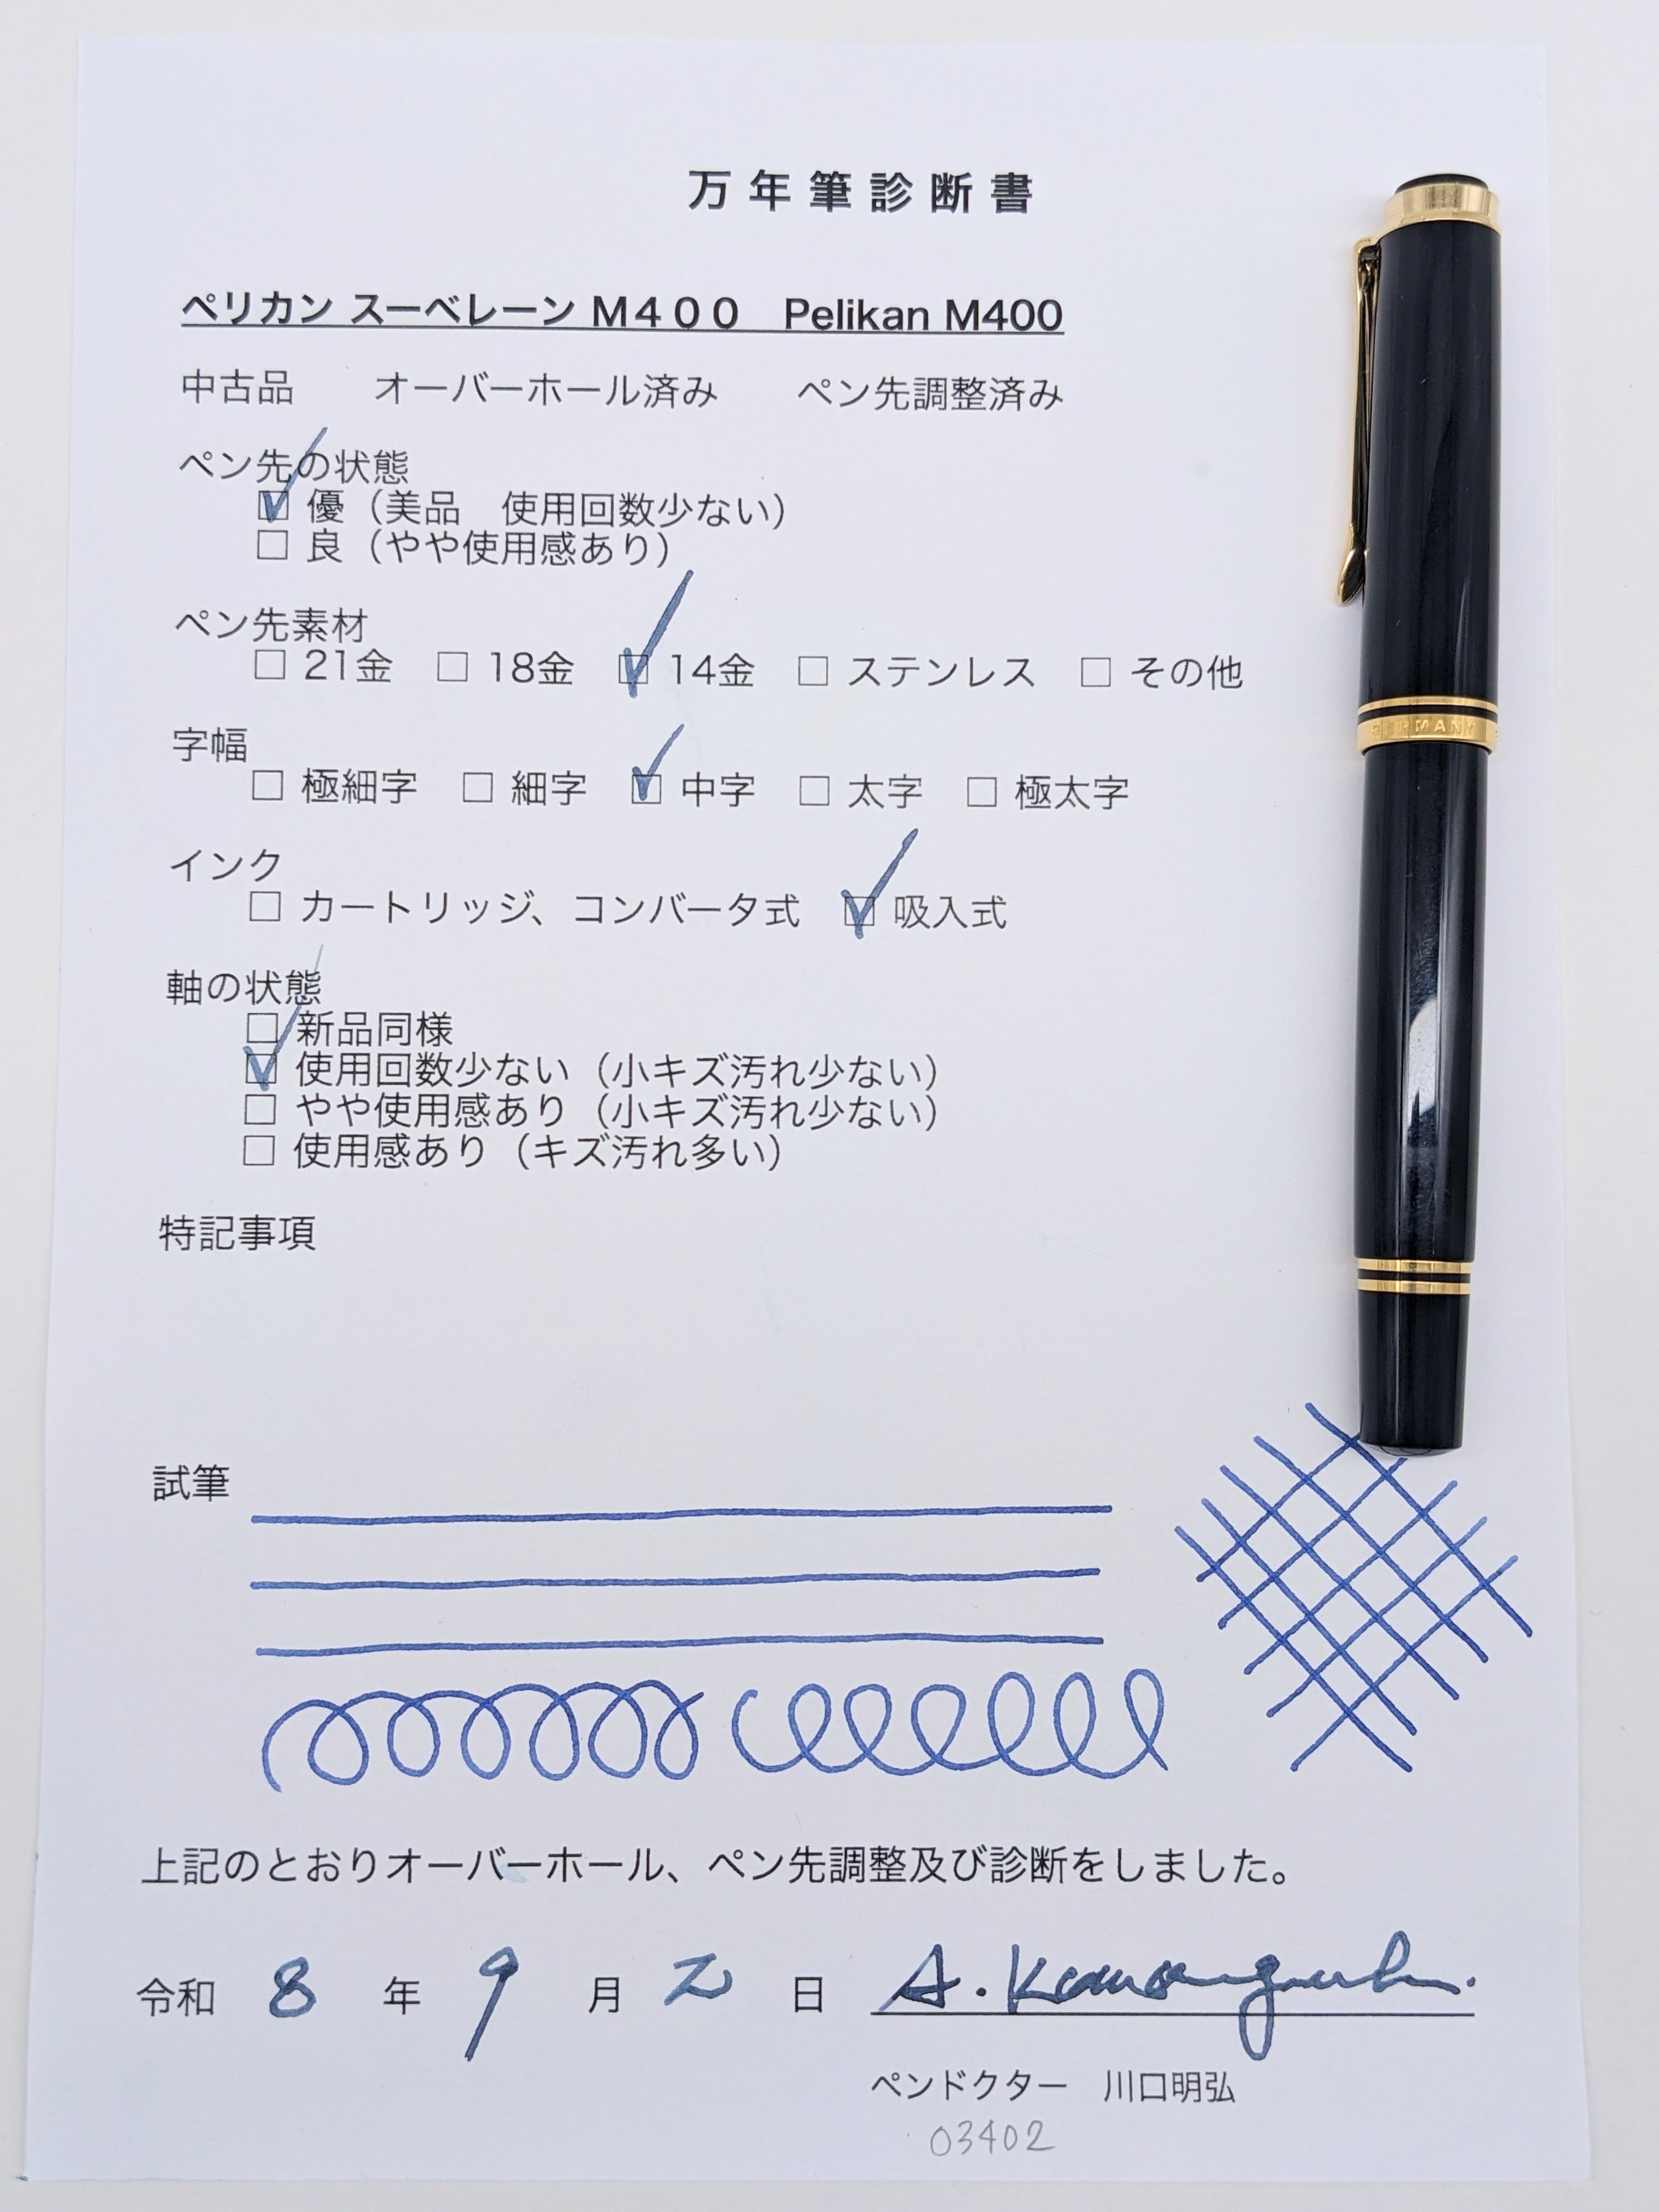 万年筆診断書
ペリカン スーベレーン M400　Pelikan M400
中古品　　オーバーホール済み　　ペン先調整済み
ペン先の状態
☑ 優（美品　使用回数少ない）
□ 良（やや使用感あり）
ペン先素材
□ 21金　□ 18金　☑ 14金　□ ステンレス　□ その他
字幅
□ 極細字　□ 細字　☑ 中字　□ 太字　□ 極太字
インク
□ カートリッジ、コンバータ式　☑ 吸入式
軸の状態
□ 新品同様
☑ 使用回数少ない（小キズ汚れ少ない）
□ やや使用感あり（小キズ汚れ少ない）
□ 使用感あり（キズ汚れ多い）
特記事項
試筆
上記のとおりオーバーホール、ペン先調整及び診断をしました。
令和 8 年 9 月 2 日 A. Kawaguchi.
ペンドクター　川口明弘
03402
GERMANY